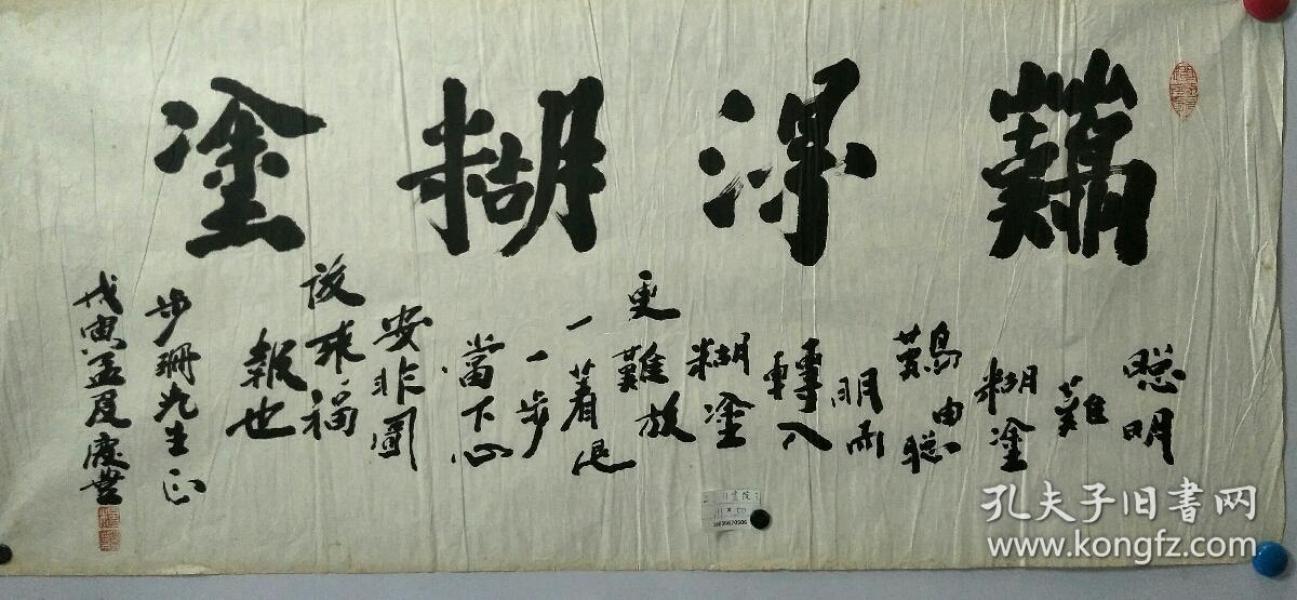 難得糊塗
聰明
難
糊塗
難由聰
明而
轉入
糊塗
更難放
一著退
一步
當下心
安非圖
後來福
報也
步珊先生正
戊寅孟夏慶云
孔夫子旧书网
www.kongfz.com